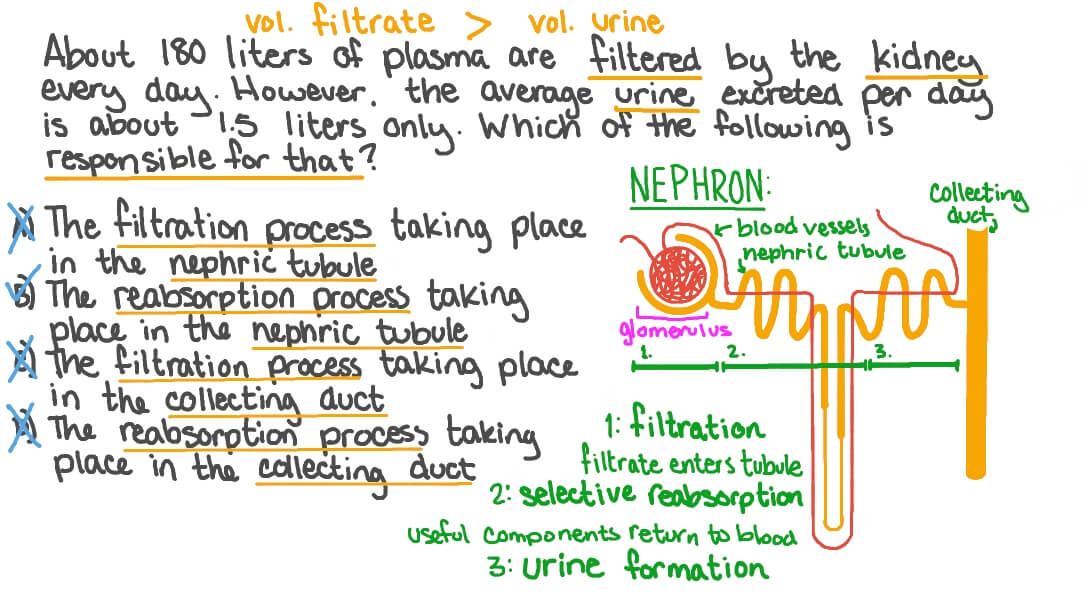 vol. filtrate > vol. urine
About 180 liters of plasma are filtered by the kidney
every day. However, the average urine excreted per day
is about 1.5 liters only. Which of the following is
responsible for that?
A) The filtration process taking place
in the nephric tubule
B) The reabsorption process taking
place in the nephric tubule
C) The filtration process taking place
in the collecting duct
D) The reabsorption process taking
place in the collecting duct
NEPHRON:
collecting
duct
blood vessels
nephric tubule
glomerulus
1. 2. 3.
1: filtration
filtrate enters tubule
2: selective reabsorption
useful components return to blood
3: urine formation